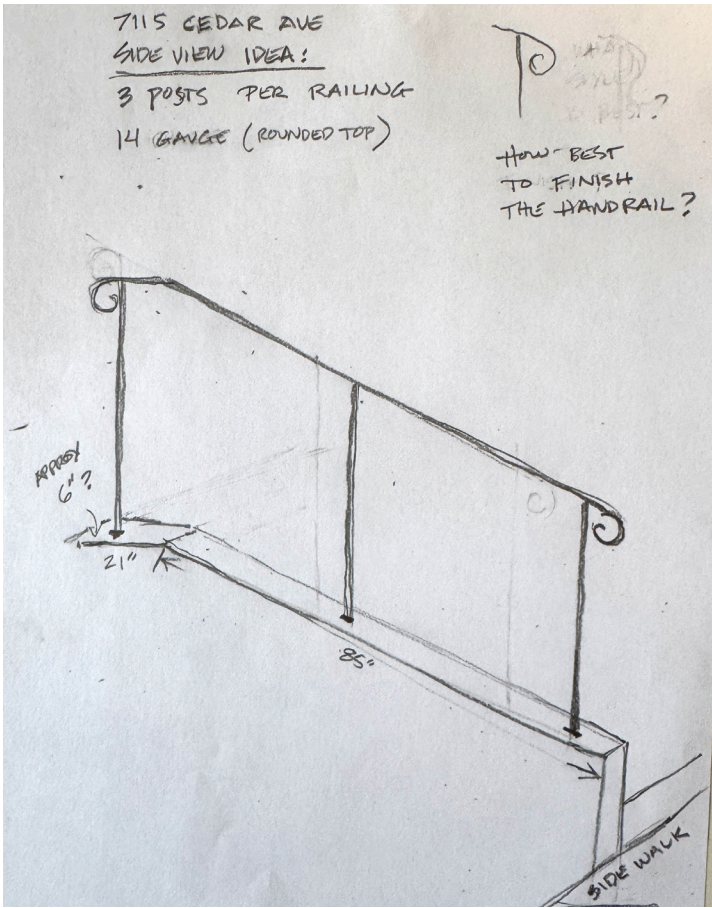 7115 CEDAR AVE
SIDE VIEW IDEA:
3 POSTS PER RAILING
14 GAUGE (ROUNDED TOP)
BEST?
HOW BEST
TO FINISH
THE HANDRAIL?
APPROX
6"?
21"
85"
SIDE WALK